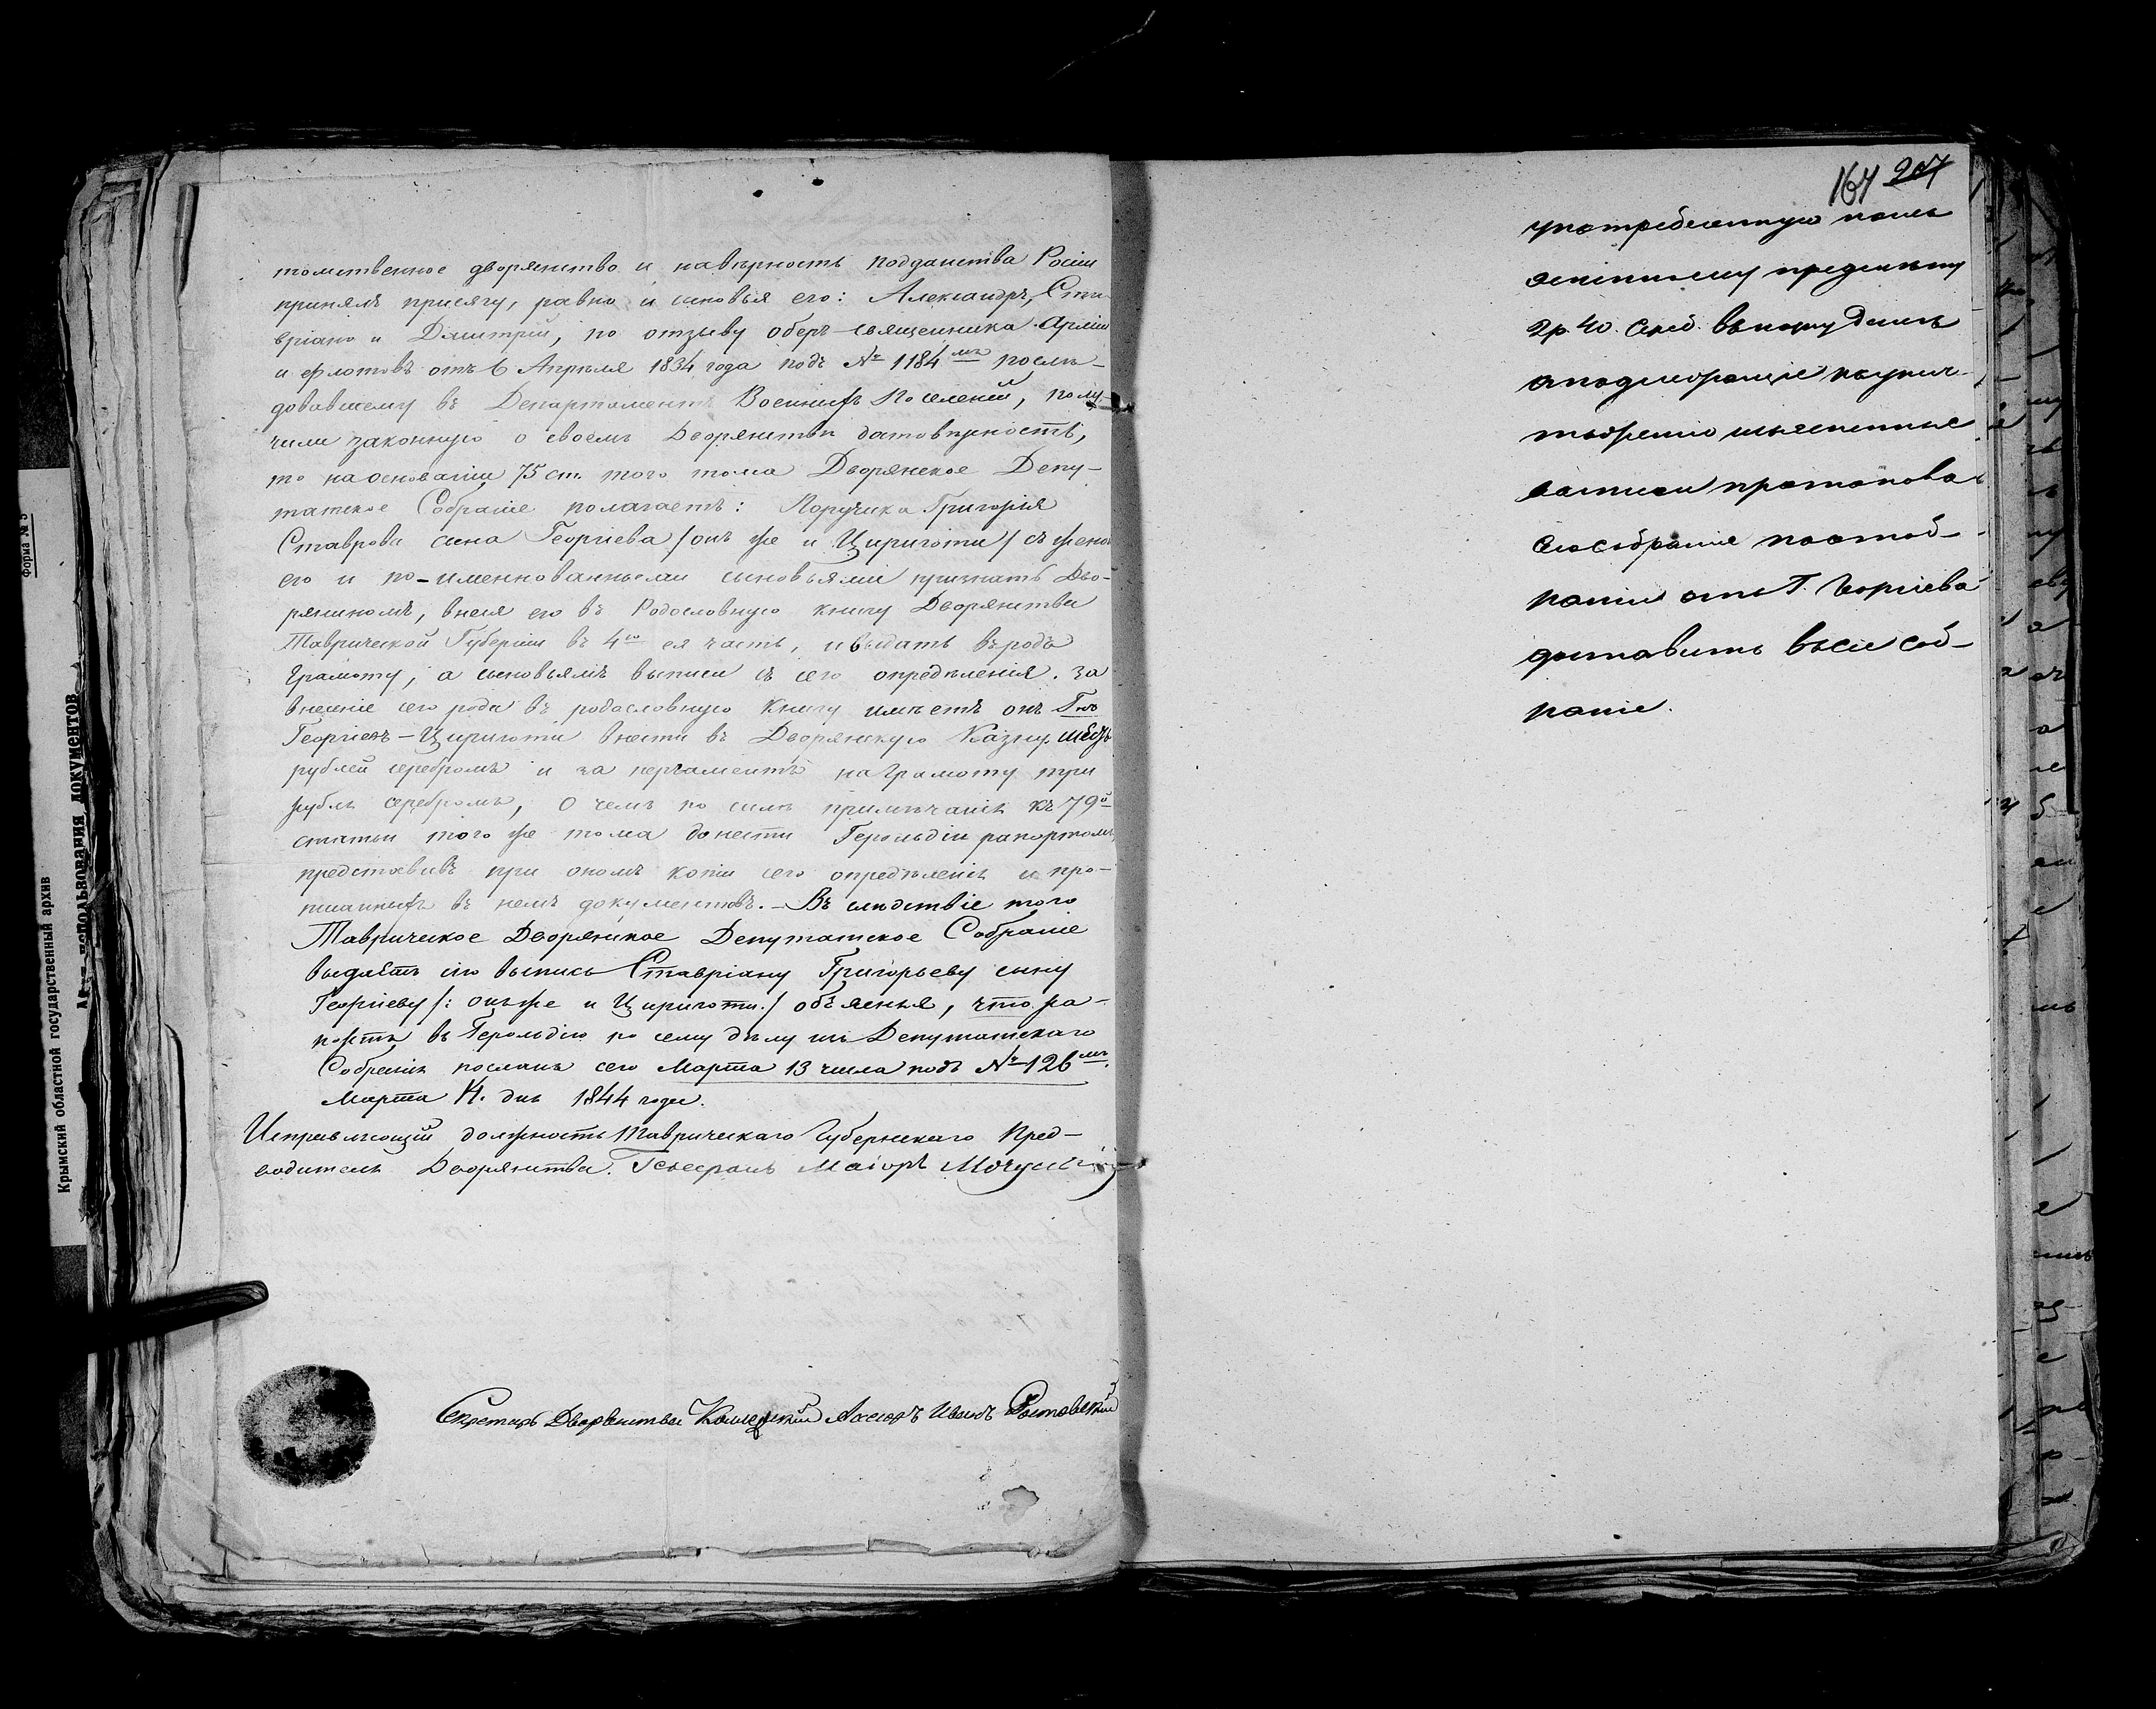 томственное дворянство и на вѣрность подданства Росіи
принялъ присягу, равно и сыновья его: Александръ, Ста-
вріано и Дмитрій, по отзыву оберъ-священника Арміи
и флотовъ отъ 6 Апрѣля 1834 года подъ № 1184мъ послѣ-
довавшему въ Департаментъ Военныхъ Поселеній, полу-
чили законную о своемъ Дворянствѣ достовѣрность,
то на основаніи 75 ст. того тома Дворянское Депу-
татское Собраніе полагаетъ: Поручика Григорія
Ставрова сына Георгіева /онъ же и Цириготи/ съ женою
его и по-именнованными сыновьями признать Дво-
ряниномъ, внеся его въ Родословную книгу Дворянства
Таврической Губерніи въ 4ю ея часть, и выдать въ родъ
Грамоту, а сыновьямъ выписи съ сего опредѣленія. За
внесеніе его рода въ родословную Книгу имѣетъ онъ Гнъ
Георгіевъ-Цириготи внести въ Дворянскую Казну шесть
рублей серебромъ и за пергаментъ на Грамоту три
рубля серебромъ, О чемъ по силѣ примѣчанія къ 79й
статьи того же тома донести Герольдіи рапортомъ,
представивъ при ономъ копіи сего опредѣленія и про-
писанныхъ въ немъ документовъ. - Въ слѣдствіе того
Таврическое Дворянское Депутатское Собраніе
выдаетъ сію выпись Ставріану Григорьеву сыну
Георгіеву /: онъ же и Цириготи :/ объясняя, что ра-
портъ въ Герольдію по сему дѣлу изъ Депутатскаго
Собранія посланъ сего Марта 13 числа подъ № 126мъ.
Марта 14. дня 1844 года.
Исправляющій должность Таврическаго Губернскаго Пред-
водителя Дворянства. Генералъ Маіоръ
Секретарь Дворянства Коллежскій Асесоръ Иванъ Ростовскій
164 207
употребленную
предмету
2 р 40. Сер.

протокола
Сіе собраніе
Г. Георгіева
доставить въ сіе соб-
раніе.
Форма № 5
Крымский областной государственный архив
использования документов